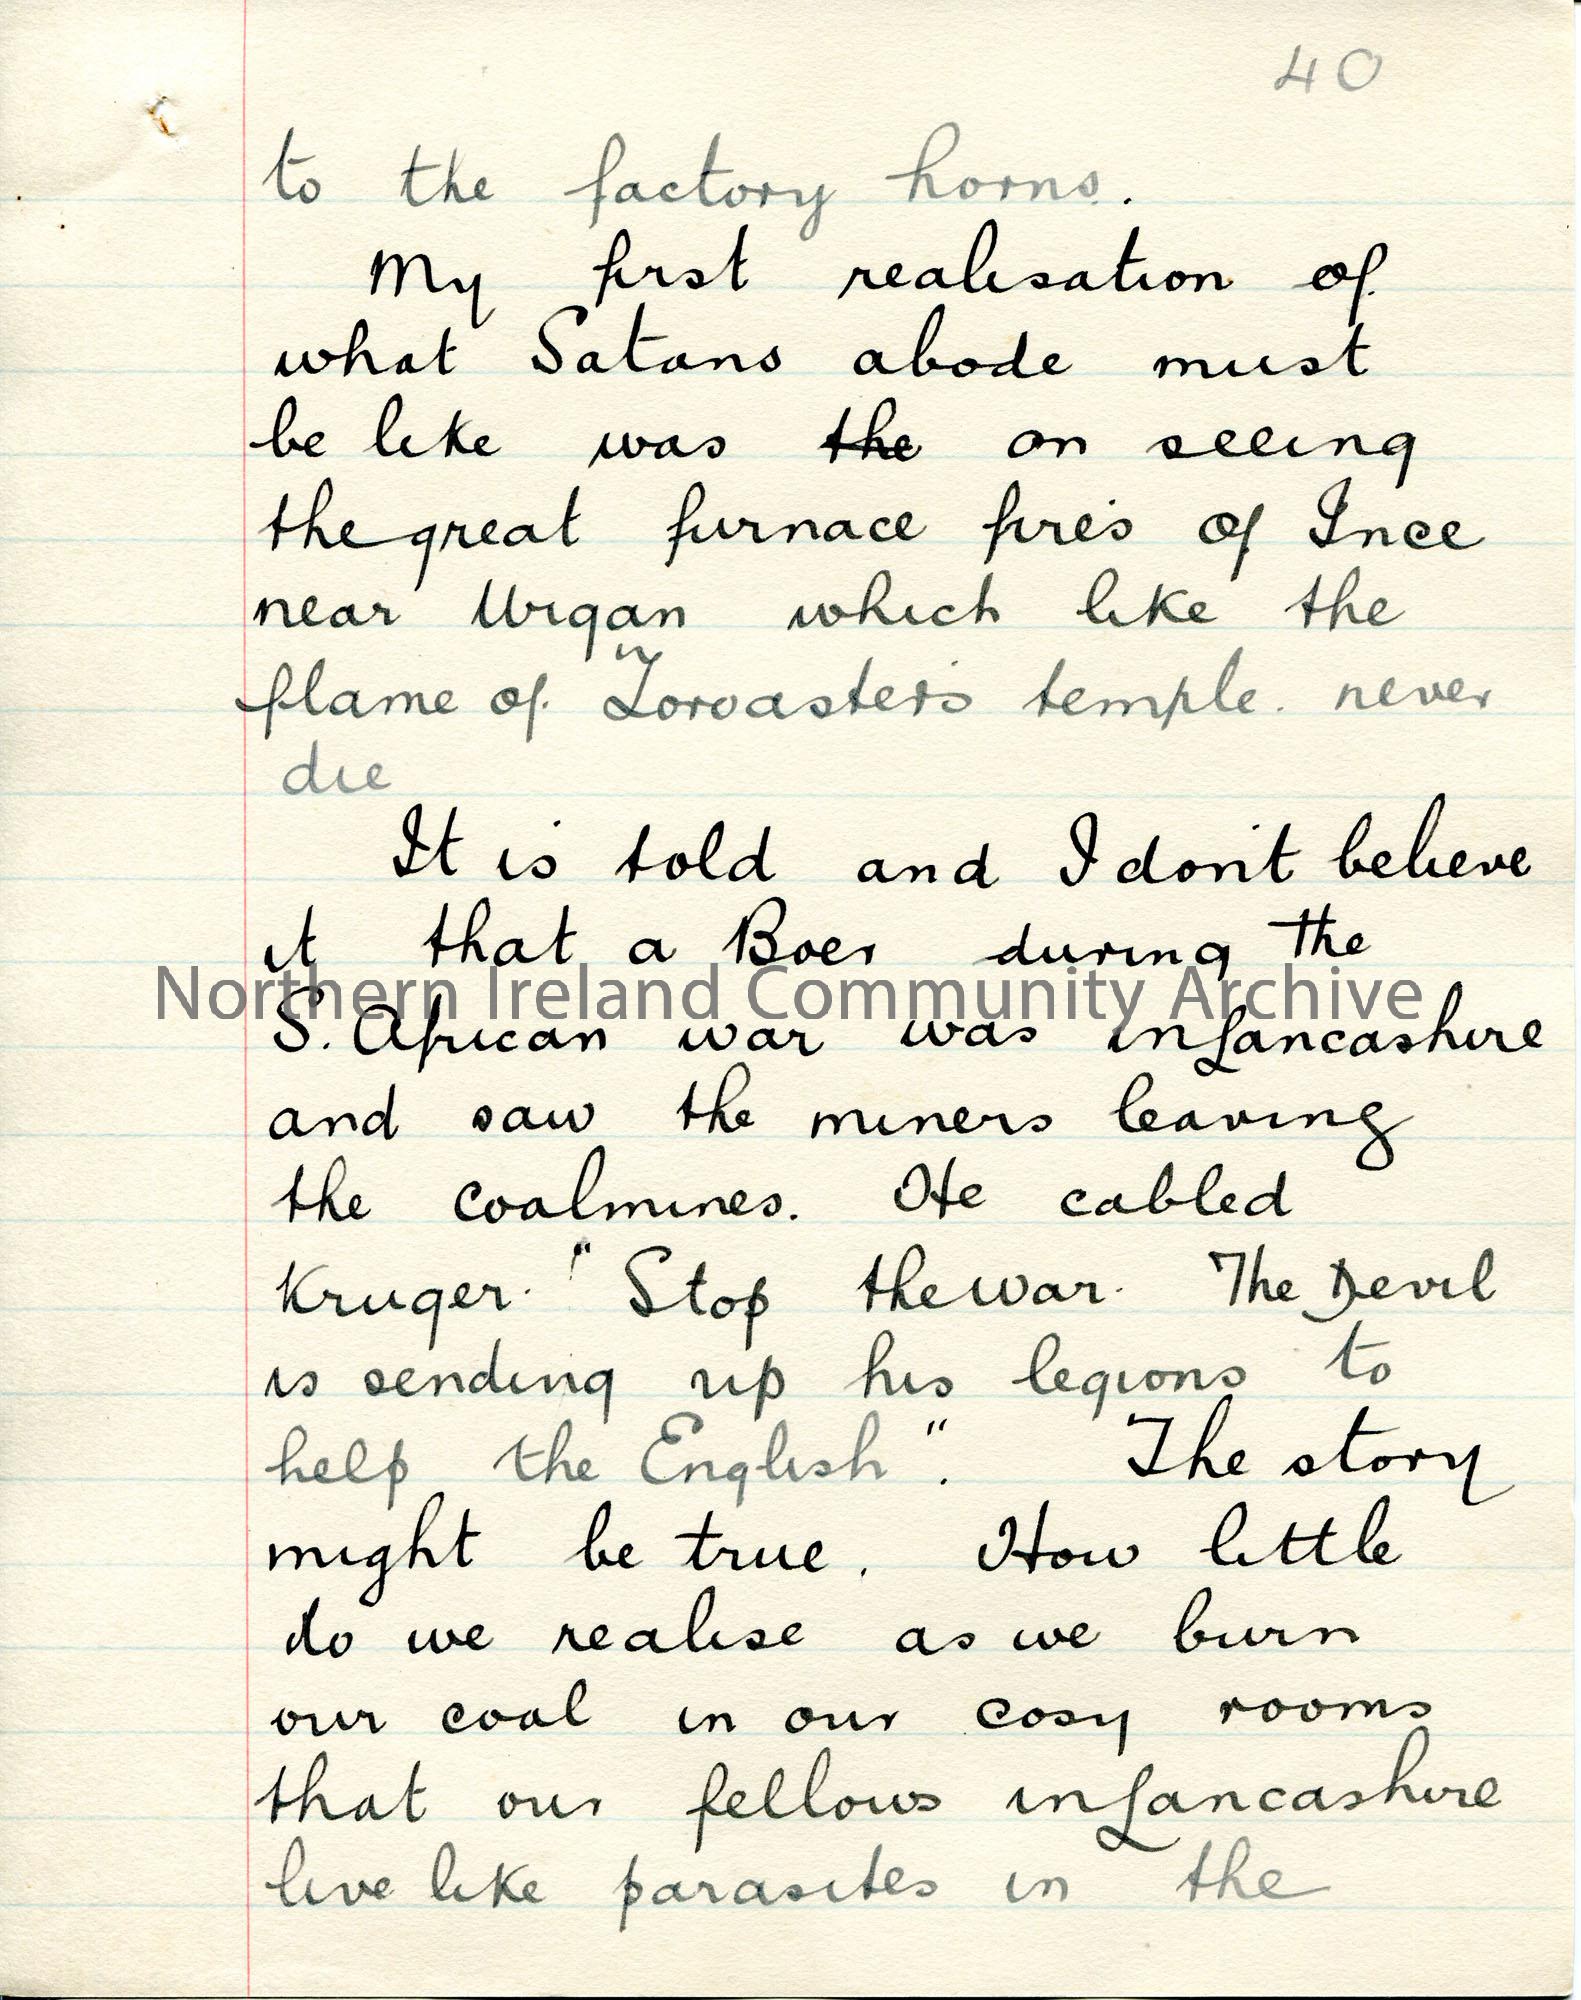 40
to the factory horns.
My first realisation of
what Satans abode must
be like was the on seeing
the great furnace fires of Ince
near Wigan which like the
flame of Zoroasters temple. never
die
It is told and I don't believe
it that a Boer during the
Northern Ireland Community Archive
S. African war was in Lancashire
and saw the miners leaving
the coalmines. He cabled
Kruger. "Stop the war. The Devil
is sending up his legions to
help the English". The story
might be true. How little
do we realise as we burn
our coal in our cosy rooms
that our fellows in Lancashire
live like parasites in the